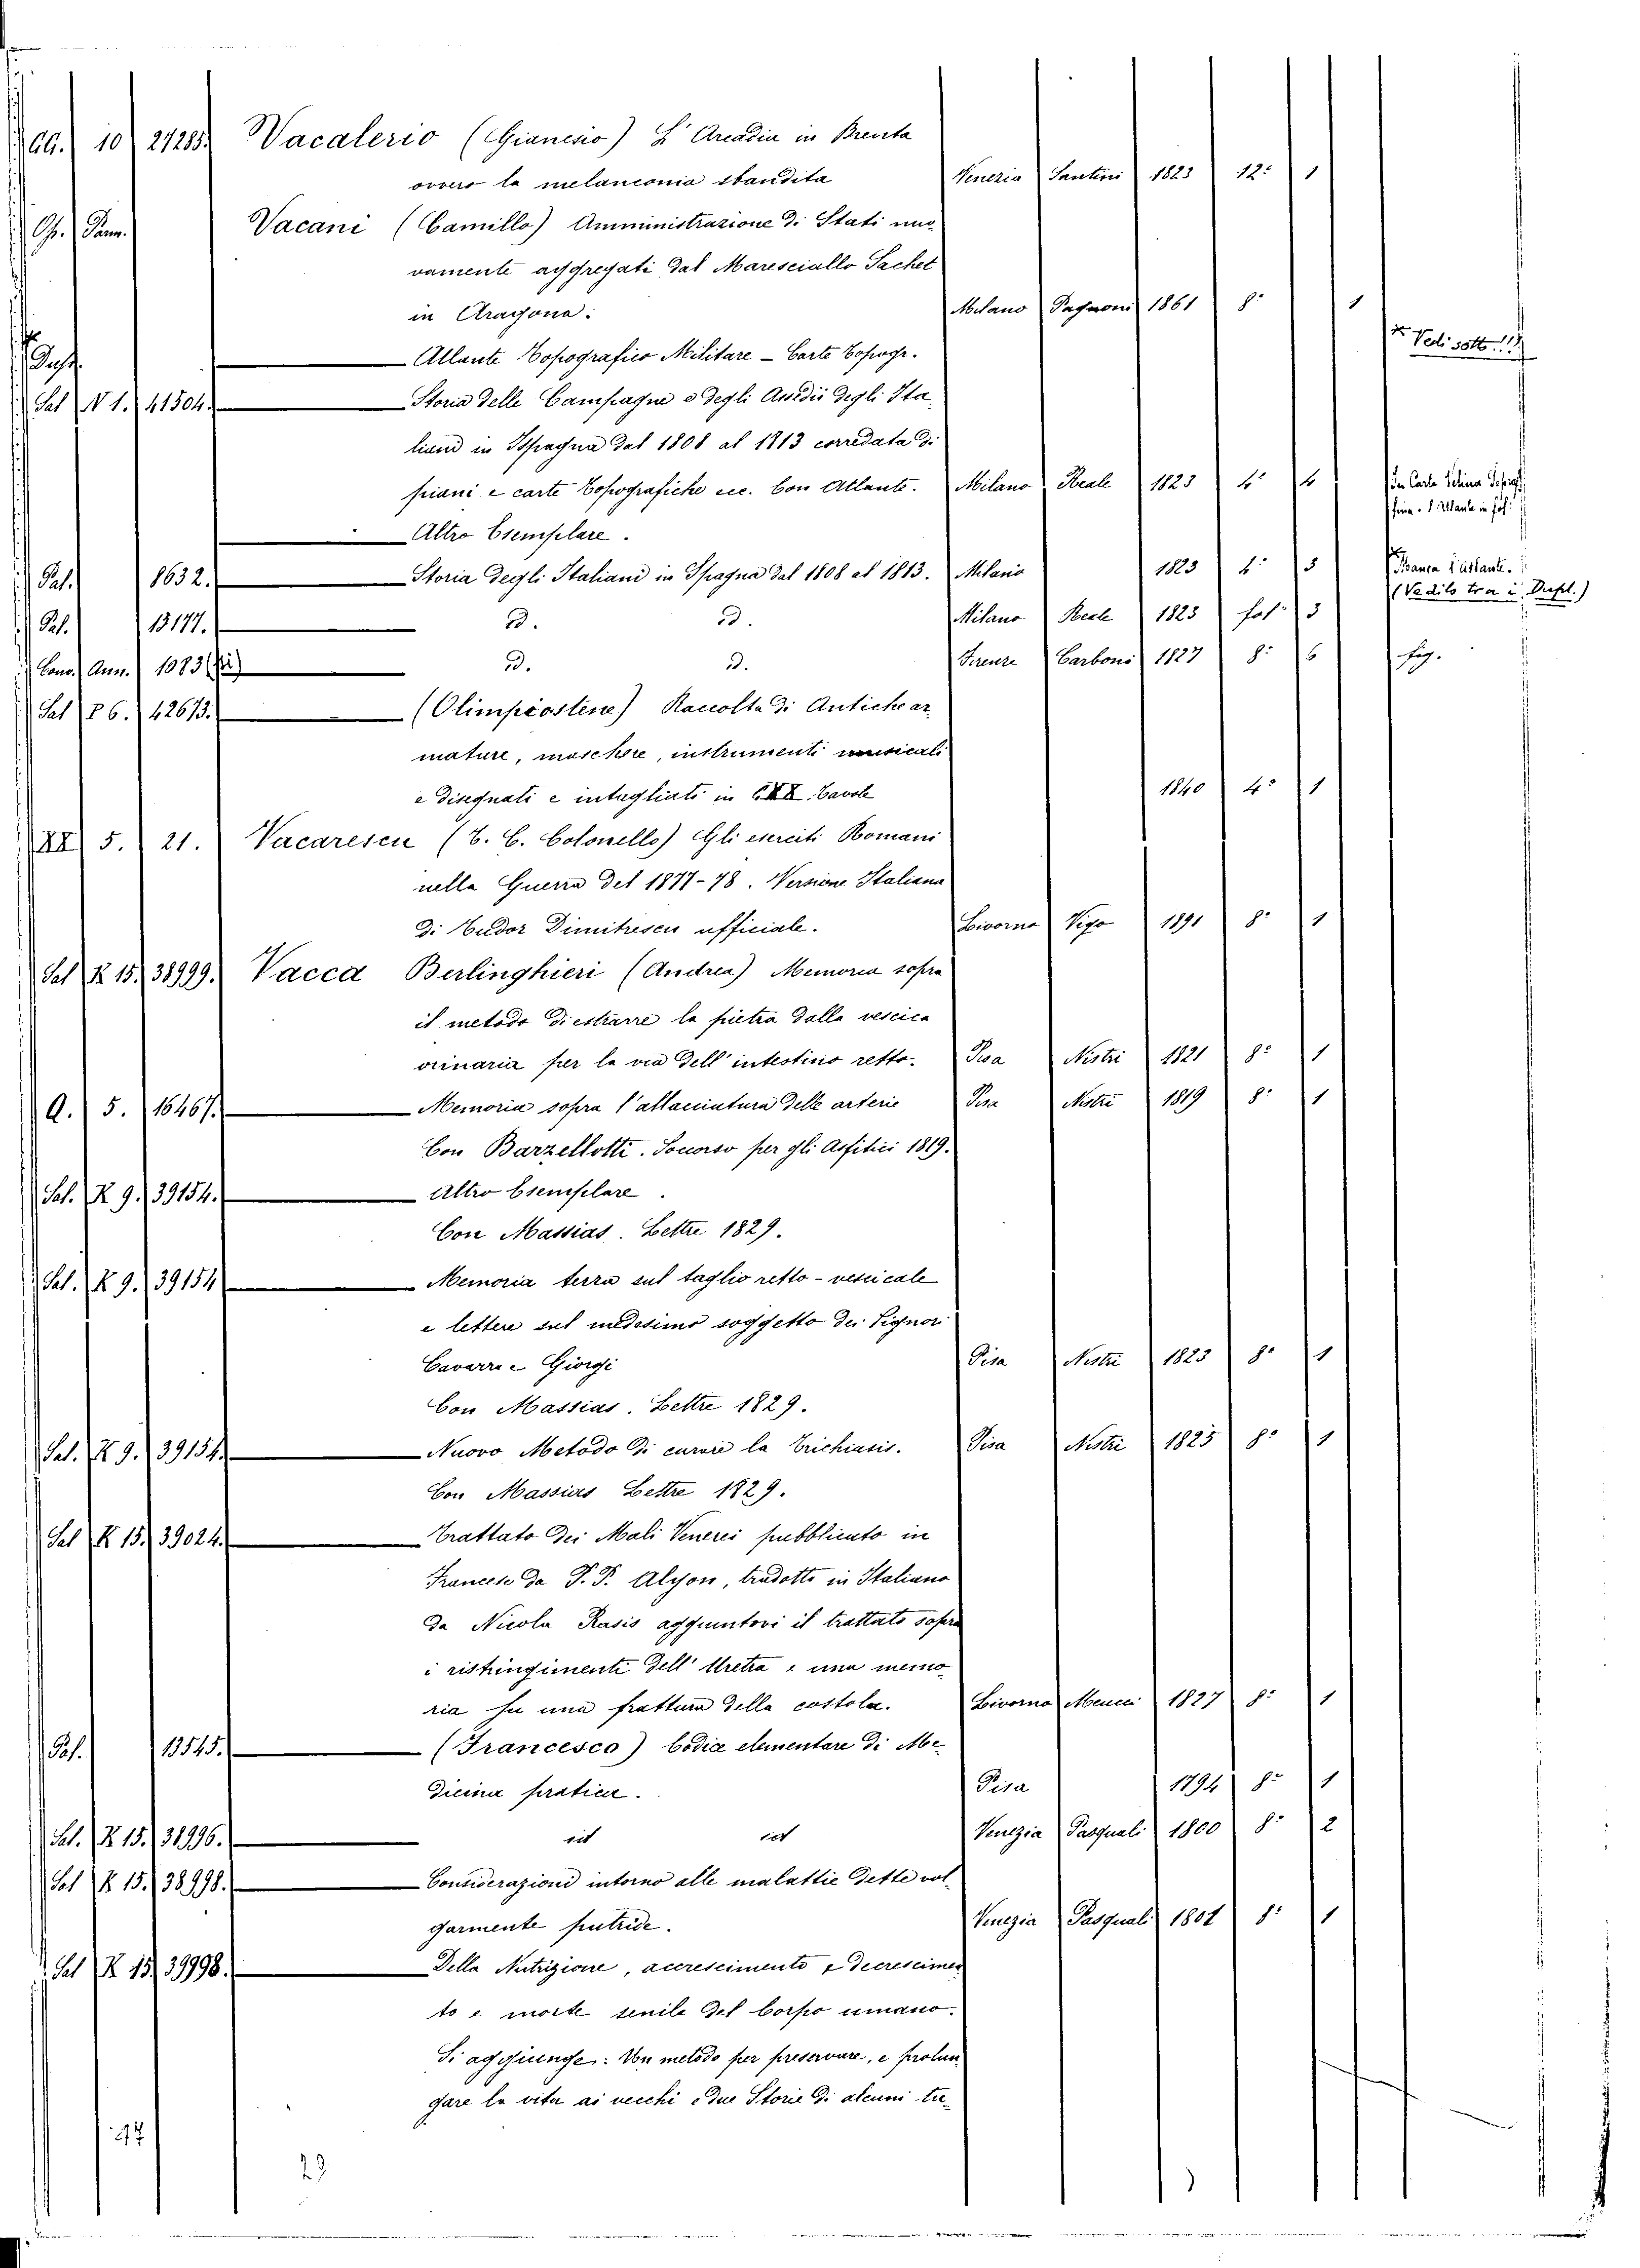 10 27285. Vacalerio (Gianesio) L'Arcadia in Brenta
ovvero la melanconia sbandita Venezia Santini 1823 12: 1
Vacani (Camillo) Amministrazione di Stati nuo-
vamente aggregati dal Maresciallo Sachet
in Aragona: Milano Pagnoni 1861 8: 1
Atlante Topografico Militare - Carte Topogr. Vedi sotto
Sal N 1. 41504. Storia delle Campagne e degli Assedii degli Ita-
liani in Ispagna dal 1808 al 1813 corredata di
piani e carte Topografiche ecc. Con Atlante. Milano Reale 1823 4: 4 In Carta
Altro Esemplare. 1 Atlante in fol:
Pal. 8632. Storia degli Italiani in Spagna dal 1808 al 1813. Milano 1823 4: 3 Manca l'atlante.
(Vedilo tra i Dupl.)
Pal. 13177. D. D. Milano Reale 1823 fol: 3
Ann. 1083 D. D. Firenze Carboni 1827 8: 6 fig.
Sal P 6. 42673. (Olimpiostene) Raccolta di Antiche ar-
mature, maschere, instrumenti musicali
e disegnati e intagliati in Tavole 1840 4: 1
XII 5. 21. Vacarescu (T. C. Colonello) Gli eserciti Romani
nella Guerra del 1877-78. Versione Italiana
di Tudor Dimitrescu ufficiale. Livorno Vigo 1891 8: 1
Sal K 15. 38999. Vacca Berlinghieri (Andrea) Memoria sopra
il metodo di estrarre la pietra dalla vescica
orinaria per la via dell'intestino retto. Pisa Nistri 1821 8: 1
A. 5. 16467. Memoria sopra l'allacciatura delle arterie Pisa Nistri 1819 8: 1
Con Barzellotti. Soccorso per gli Asfitici 1819.
Sal. K 9. 39154. Altro Esemplare.
Con Massias. Lettre 1829.
Sal. K 9. 39154 Memoria terza sul taglio retto-vescicale
e lettere sul medesimo soggetto dei Signori
Cavarra e Giorgi Pisa Nistri 1823 8: 1
Con Massias. Lettre 1829.
Sal. K 9. 39154. Nuovo Metodo di curare la Trichiasis. Pisa Nistri 1825 8: 1
Con Massias Lettre 1829.
Sal K 15. 39024. Trattato dei Mali Venerei pubblicato in
Francese da P. P. Alyon, tradotto in Italiano
da Nicola Rasis aggiuntovi il trattato sopra
i ristringimenti dell'Uretra e una memo-
ria su una frattura della costola. Livorno Meucci 1827 8: 1
Pal. 13545. (Francesco) Codice elementare di Me-
dicina pratica. Pisa 1794 8: 1
Sal. K 15. 38996. Venezia Pasquali 1800 8: 2
Sal K 15. 38998. Considerazioni intorno alle malattie dette vol-
garmente putride. Venezia Pasquali 1801 8: 1
Sal K 15. 39998. Della Nutrizione, accrescimento e decrescimen
to e morte senile del Corpo umano.
Si aggiunge: Un metodo per preservare, e prolun
gare la vita ai vecchi e due Storie di alcuni tu-
47
23